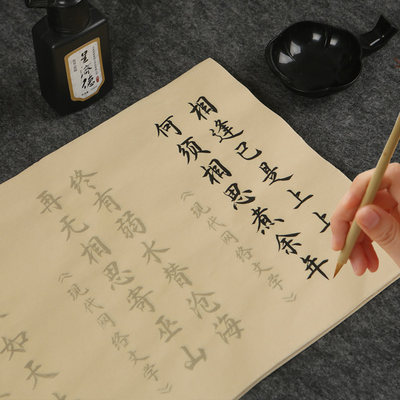 相逢已是上上
何须相思煮余年
《现代网络文学》
终有弱水替沧海
再无相思寄巫山
《现代网络文学》
如天上